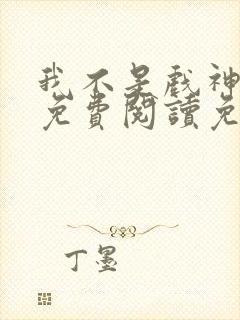 我不是戲神
免費閱讀免
丁墨